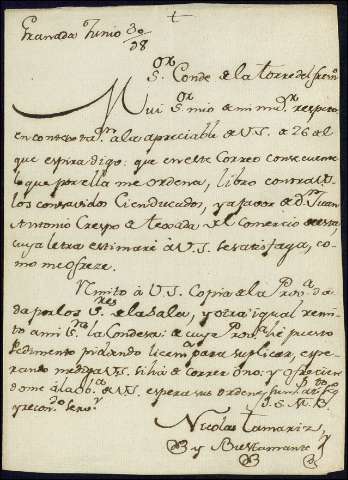 Granada Junio 30/38
Sor Conde de la torre del
Mui Sor mio de mi mr respeto
en contestn a la apreciable de V.S. de 26 del
que espira digo: que en este Correo consecuente
lo que por ella me ordena, libro contra V.S.
los consavidos Cien ducados, y a favor de dn Juan
Antonio Crespo de texada del Comercio de esta
cuya letra estimaré à V.S. se satisfaga, co-
mo me ofreze.
Rmito à V.S. Copia de la Prova da-
da por los Sres de la Sala, y otra igual remi-
to a mi Sra la Condesa: de cuya Prova hé puesto
pedimento pidiendo licena para suplicar, espe-
rando me diga V.S. si há de correr ô no: y ofrecien
dome à la obe de V.S. espera sus ordenes
y recondo servr
J.S.M.B.
Nicolas Tamariz
y Bustamante